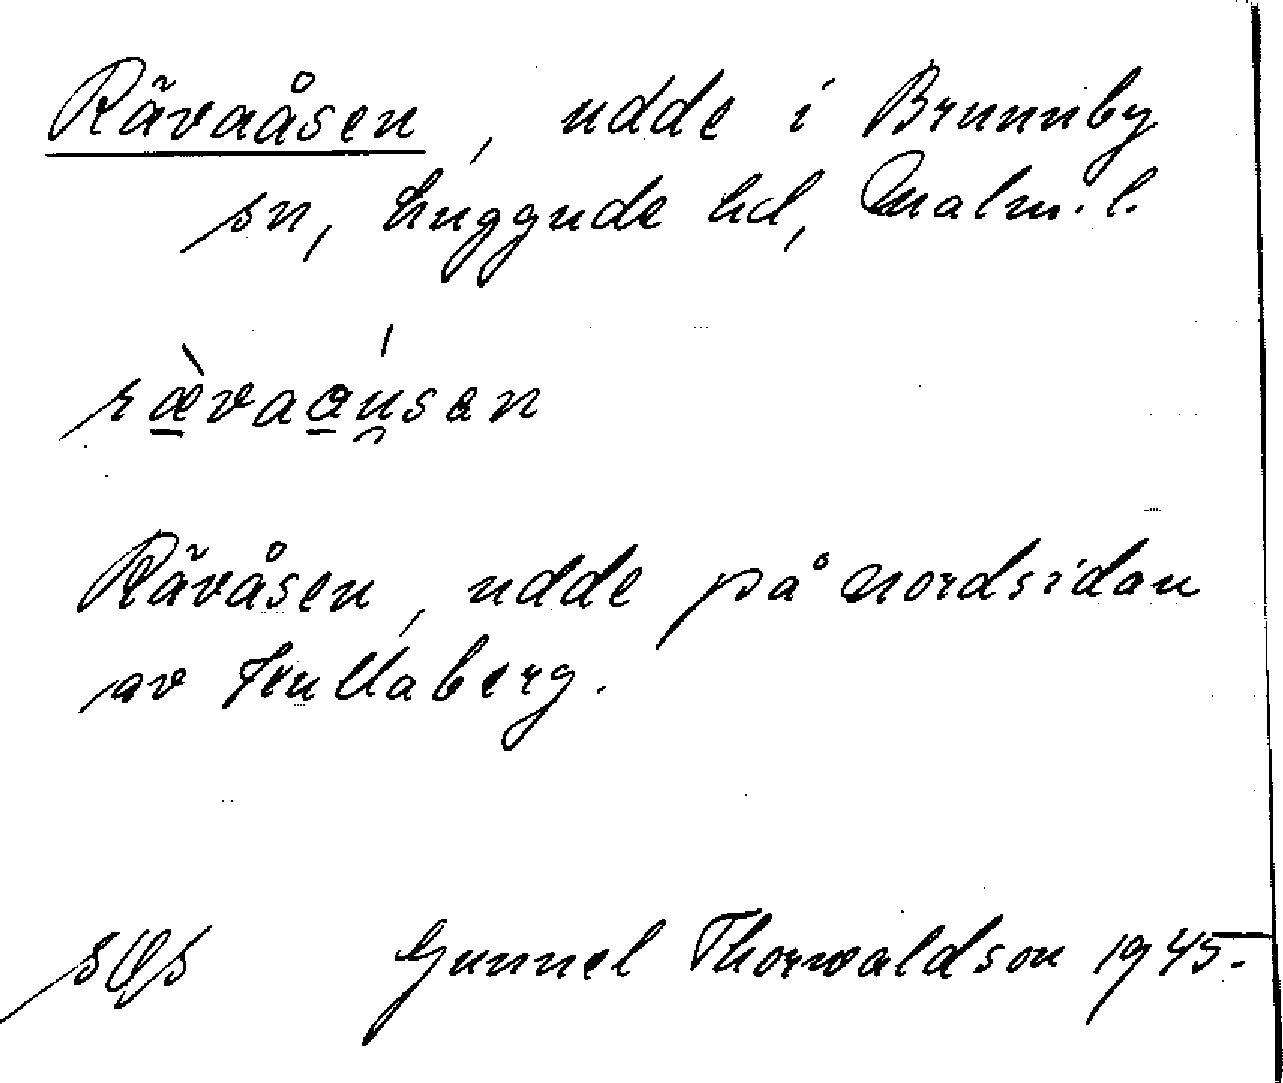 Rävaåsen, udde i Brunnby
sn, Luggude hd, Malm. l.
ræ̠̀vaa̠ú̯sən
Rävåsen, udde på nordsidan
av Kullaberg.
Gunnel Thorwaldson 1945.